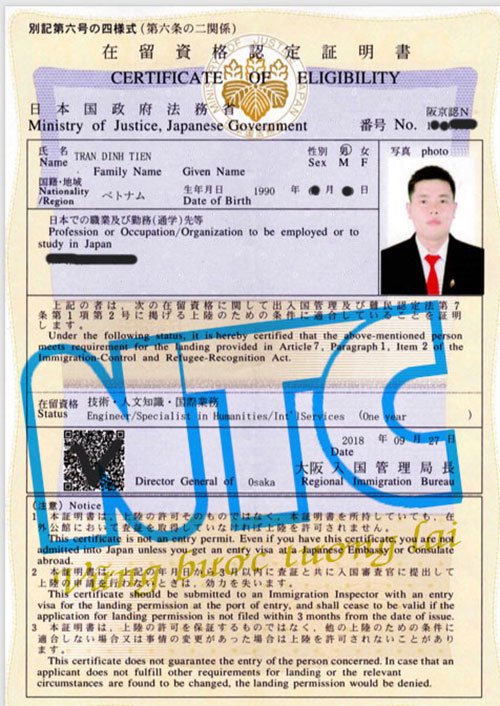 別記第六号の四様式(第六条の二関係)
在留資格認定証明書
CERTIFICATE OF ELIGIBILITY
日本国政府法務省
Ministry of Justice, Japanese Government
阪京認N
番号 No. 1
氏名 TRAN DINH TIEN
Name Family Name Given Name
性別 男 女
Sex M F
写真 photo
国籍・地域
Nationality
/Region ベトナム
生年月日 1990 年 月 日
Date of Birth
日本での職業及び勤務(通学)先等
Profession or Occupation/Organization to be employed or to
study in Japan
上記の者は、次の在留資格に関して出入国管理及び難民認定法第7
条第1項第2号に掲げる上陸のための条件に適合していることを証明
します。
Under the following status, it is hereby certified that the above-mentioned person
meets requirement for the landing provided in Article 7, Paragraph 1, Item 2 of the
Immigration-Control and Refugee-Recognition Act.
NTC
在留資格 技術・人文知識・国際業務
Status Engineer/Specialist in Humanities/Int'lServices (One year )
2018 年 09 月 27 日
Date
大阪入国管理局長
Director General of Osaka Regional Immigration Bureau
(注意) Notice
1 本証明書は、上陸の許可そのものではなく、本証明書を所持していても、在
外公館において査証を取得していなければ上陸を許可されません。
This certificate is not an entry permit. Even if you have this certificate, not
admitted into Japan unless you get an entry visa at the Japanese Embassy or Consulate
abroad.
Vững bước tương lai
2 本証明書は、上記の年月日から3か月以内に査証と共に入国審査官に提出して
上陸の申請を行わないときは、効力を失います。
This certificate should be submitted to an Immigration Inspector with an entry
visa for the landing permission at the port of entry, and shall cease to be valid if the
application for landing permission is not filed within 3 months from the date of issue.
3 本証明書は、上陸の許可を保証するものではなく、他の上陸のための条件に
適合しない場合又は事情の変更があった場合は上陸を許可されないことがあり
ます。
This certificate does not guarantee the entry of the person concerned. In case that an
applicant does not fulfill other requirements for landing or the relevant
circumstances are found to be changed, the landing permission would be denied.